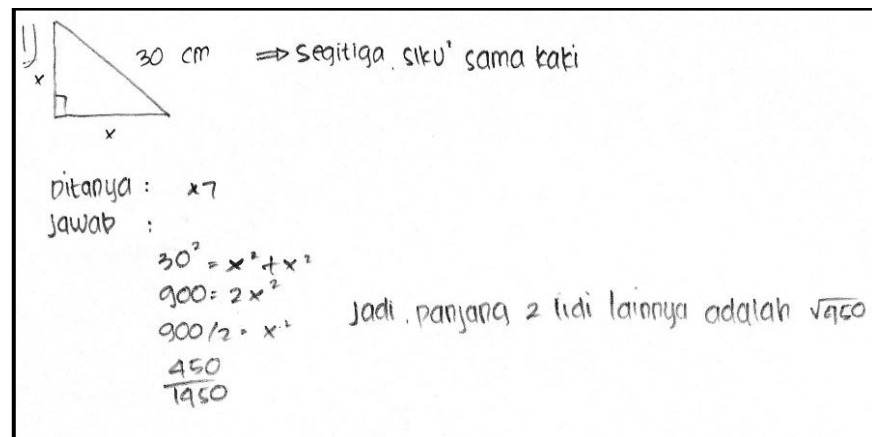 1)
30 cm ⇒ segitiga siku² sama kaki
x
x
Ditanya : x?
Jawab :
30² = x² + x²
900 = 2x²
900/2 = x²
450
√450
Jadi, panjang 2 lidi lainnya adalah √450